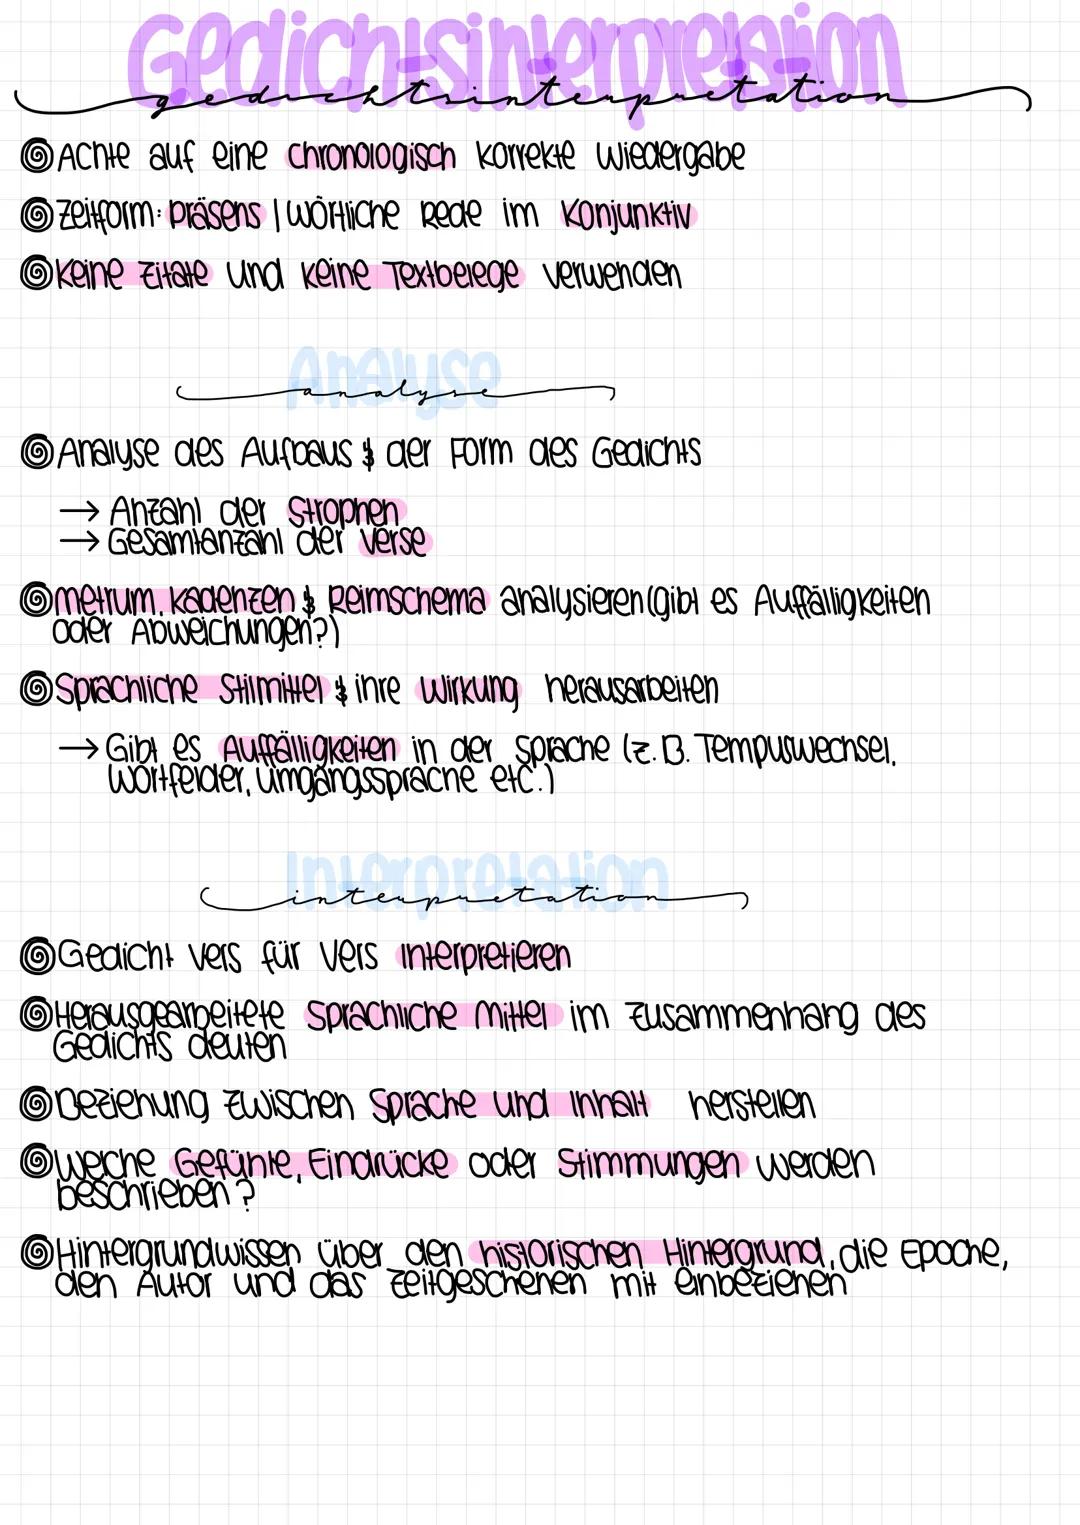 Gedichtsinterpretation
gedichtsinterpretation
Achte auf eine chronologisch korrekte Wiedergabe
Zeitform: Präsens | wörtliche Rede im Konjunktiv
Keine Zitate und keine Textbelege verwenden
Analyse
analyse
Analyse des Aufbaus & der Form des Gedichts
→ Anzahl der Strophen
→ Gesamtanzahl der Verse
Metrum, Kadenzen & Reimschema analysieren (gibt es Auffälligkeiten
oder Abweichungen?)
Sprachliche Stilmittel & ihre Wirkung herausarbeiten
→ Gibt es Auffälligkeiten in der Sprache (z.B. Tempuswechsel,
Wortfelder, Umgangssprache etc.)
Interpretation
interpretation
Gedicht Vers für Vers interpretieren
Herausgearbeitete sprachliche Mittel im Zusammenhang des
Gedichts deuten
Beziehung zwischen Sprache und Inhalt herstellen
Welche Gefühle, Eindrücke oder Stimmungen werden
beschrieben?
Hintergrundwissen über den historischen Hintergrund, die Epoche,
den Autor und das Zeitgeschehen mit einbeziehen